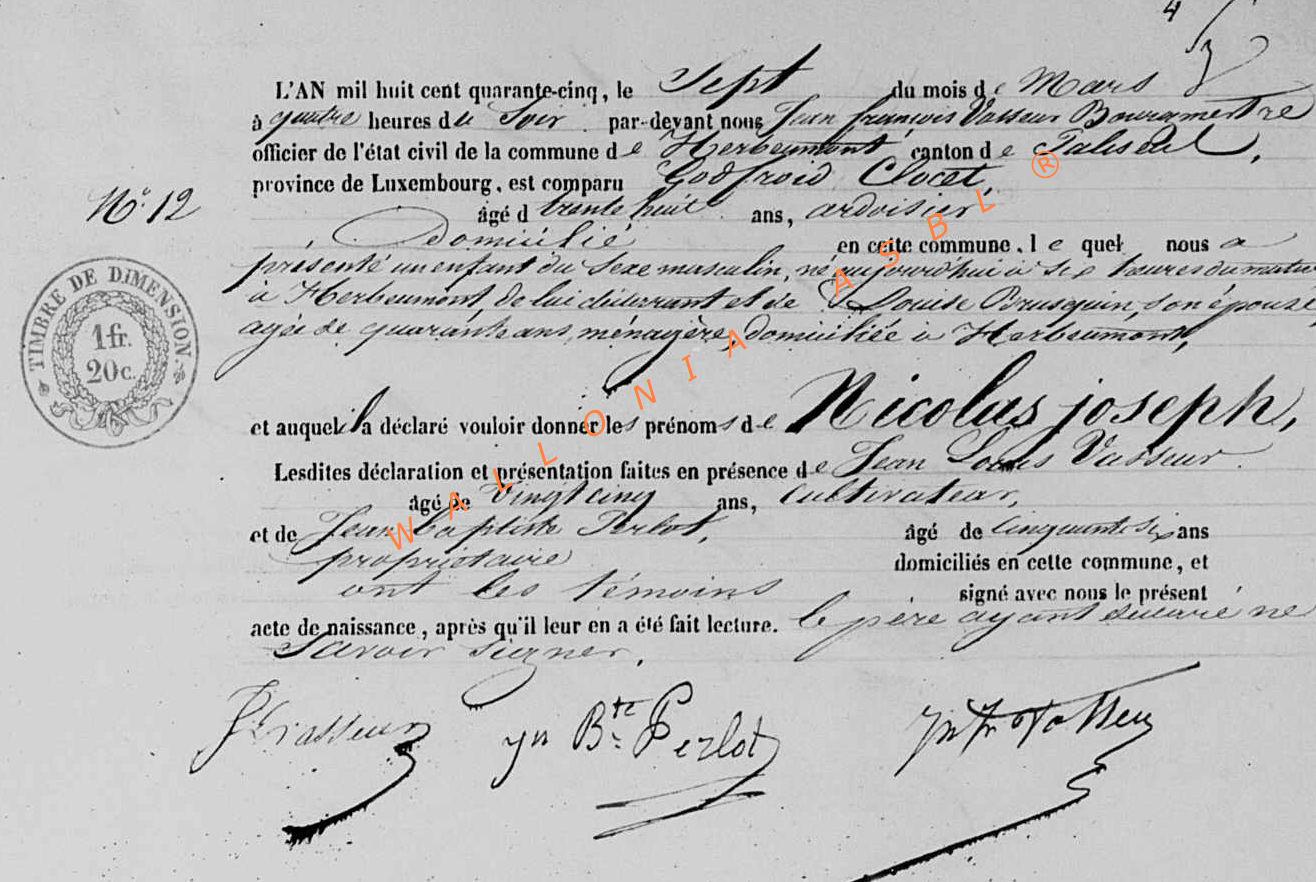 4
L'AN mil huit cent quarante-cinq, le Sept du mois de Mars
à quatre heures du Soir par-devant nous Jean françois Vasseur Bourgmestre
officier de l'état civil de la commune de Herbeumont canton de Paliseul,
province de Luxembourg, est comparu Godfroid Clocet,
N° 12
âgé d trente huit ans, ardoisier
Domicilié en cette commune, lequel nous a
présenté un enfant du Sexe masculin, né aujourd'hui à six heures du matin
à Herbeumont, de lui déclarant et de Louise Brusquin, son épouse
agée de quarante ans, ménagère, domiciliée à Herbeumont,
TIMBRE DE DIMENSION.
1 fr.
20 c.
et auquel il a déclaré vouloir donner les prénoms de Nicolas joseph,
Lesdites déclaration et présentation faites en présence de Jean Louis Vasseur
âgé de Vingt cinq ans, Cultivateur,
et de Jean baptiste Perlot, âgé de Cinquante six ans
propriétaire domiciliés en cette commune, et
ont les témoins signé avec nous le présent
acte de naissance, après qu'il leur en a été fait lecture. le père ayant déclaré ne
Savoir Signer.
Jn Bte Perlot
WALLONIA ASBL ®